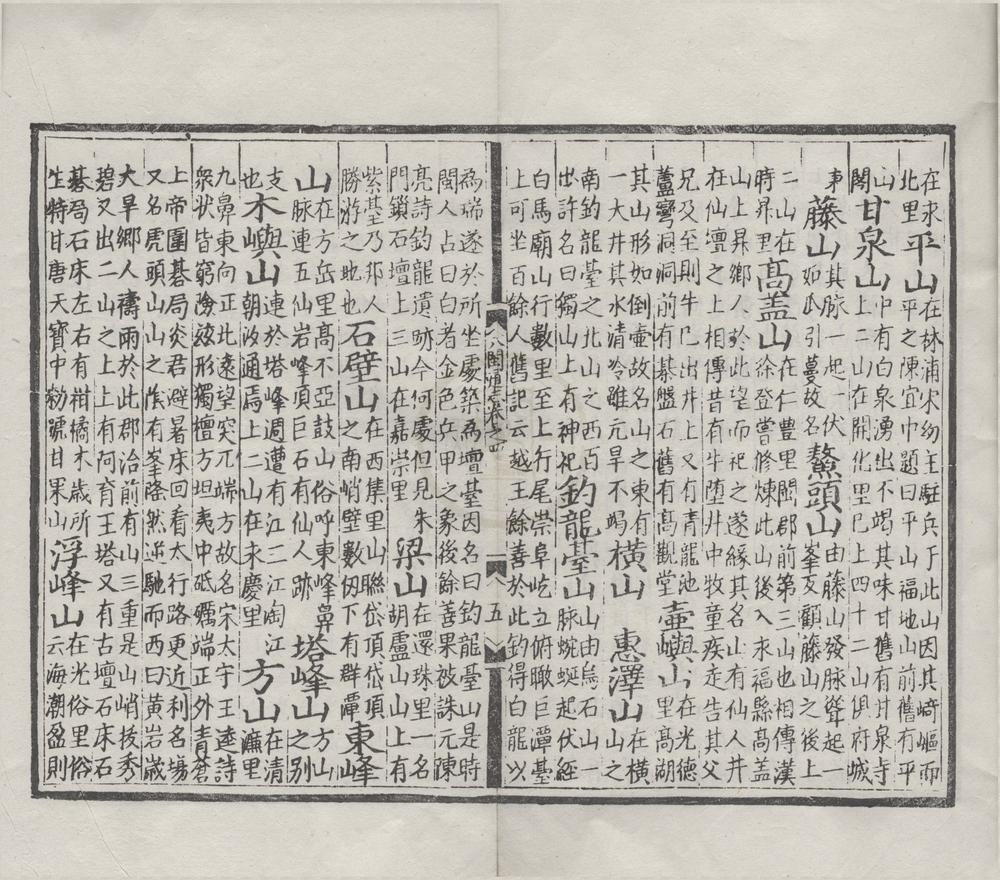 在永北里平山在林浦宋幼主駐兵于此山因其崎嶇而
平之陳宜中題曰平山福地山前舊有平
山閣甘泉山中有白泉湧出不竭其味甘舊有甘泉寺
上二山在開化里已上四十二山俱府城
東藤山其脉一起一伏
如瓜引蔓故名鰲頭山由藤山發脉聳起一
峯反顧藤山之上
二山在時昇里高盖山在仁豊里閩郡前第三山也相傳漢
徐登嘗修煉此山後入永福縣高盖
山上昇鄉人於此望而祀之遂緣其名山有仙人井
在仙壇之上相傳昔有牛墮井中牧童疾走告其父
兄及至則牛已出井上又有青龍池
蘆彎洞洞前有棊盤石舊有高觀堂壺嶼山在光德
里高湖
其山形如倒壺故名山之東有
一大井其水清冷雖元旱不竭橫山惠澤山在橫
山之
南釣龍臺之北山之西百
出許名曰獨山上有神祀釣龍臺山山由烏石山一
脉蜿蜒起伏經
白馬廟山行數里至上行尾崇阜屹立俯瞰巨潭臺
上可坐百餘人舊記云越王餘善於此釣得白龍以
八閩通志卷之四
五
為瑞遂於所坐處築為壇臺因名曰釣龍臺山是時
閩人占曰白者金色兵甲之象後餘善果被誅元陳
亮詩釣龍遺跡今何處但見朱
門鎖石壇上三山在嘉崇里梁山在還珠里一名
胡盧山山上有
紫基乃邦人
勝遊之地也石壁山在西集里山聯岱頂岱頂
之南峭壁數仭下有群潭東峰
山在方岳里高不亞鼓山俗呼東峰鼻
山脉連五仙岩峰頂巨石有仙人跡塔峰山方山
之别
支也木嶼山連於塔峰週遭有江二江陶江
朝汐通焉上二山在永慶里方山在清
廉里
九鼻東向正北遠望突兀端方故名宋太守王逵詩
衆状皆窮險玆形獨檀方坦夷中砥礪端正外青蒼
上帝圍棊局炎君避暑床回看太行路更近利名塲
又名虎頭山山之陰有峯隆然逆馳而西曰黃岩歲
大旱鄉人禱雨於此郡治前有山三重是山峭拔秀
碧又出二山之上上有阿育王塔又有古壇石床石
棊局石床左右有柑橘木歲所
生特甘唐天寶中勑號甘果山浮峰山在光俗里俗
云海潮盈則